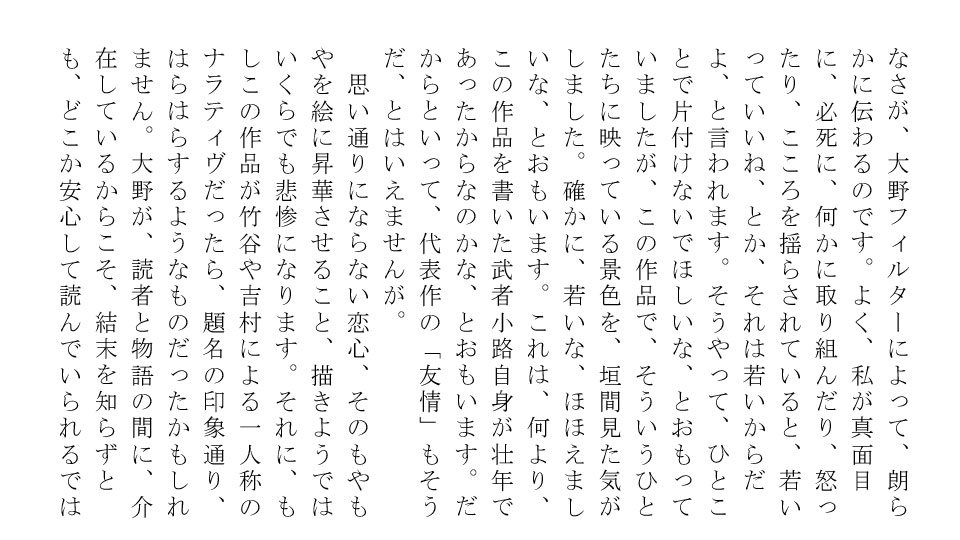 なさが、大野フィルターによって、朗ら
かに伝わるのです。よく、私が真面目
に、必死に、何かに取り組んだり、怒っ
たり、こころを揺らされていると、若い
っていいね、とか、それは若いからだ
よ、と言われます。そうやって、ひとこ
とで片付けないでほしいな、とおもって
いましたが、この作品で、そういうひと
たちに映っている景色を、垣間見た気が
しました。確かに、若いな、ほほえまし
いな、とおもいます。これは、何より、
この作品を書いた武者小路自身が壮年で
あったからなのかな、とおもいます。だ
からといって、代表作の「友情」もそう
だ、とはいえませんが。
　思い通りにならない恋心、そのもやも
やを絵に昇華させること、描きようでは
いくらでも悲惨になります。それに、も
しこの作品が竹谷や吉村による一人称の
ナラティヴだったら、題名の印象通り、
はらはらするようなものだったかもしれ
ません。大野が、読者と物語の間に、介
在しているからこそ、結末を知らずと
も、どこか安心して読んでいられるでは